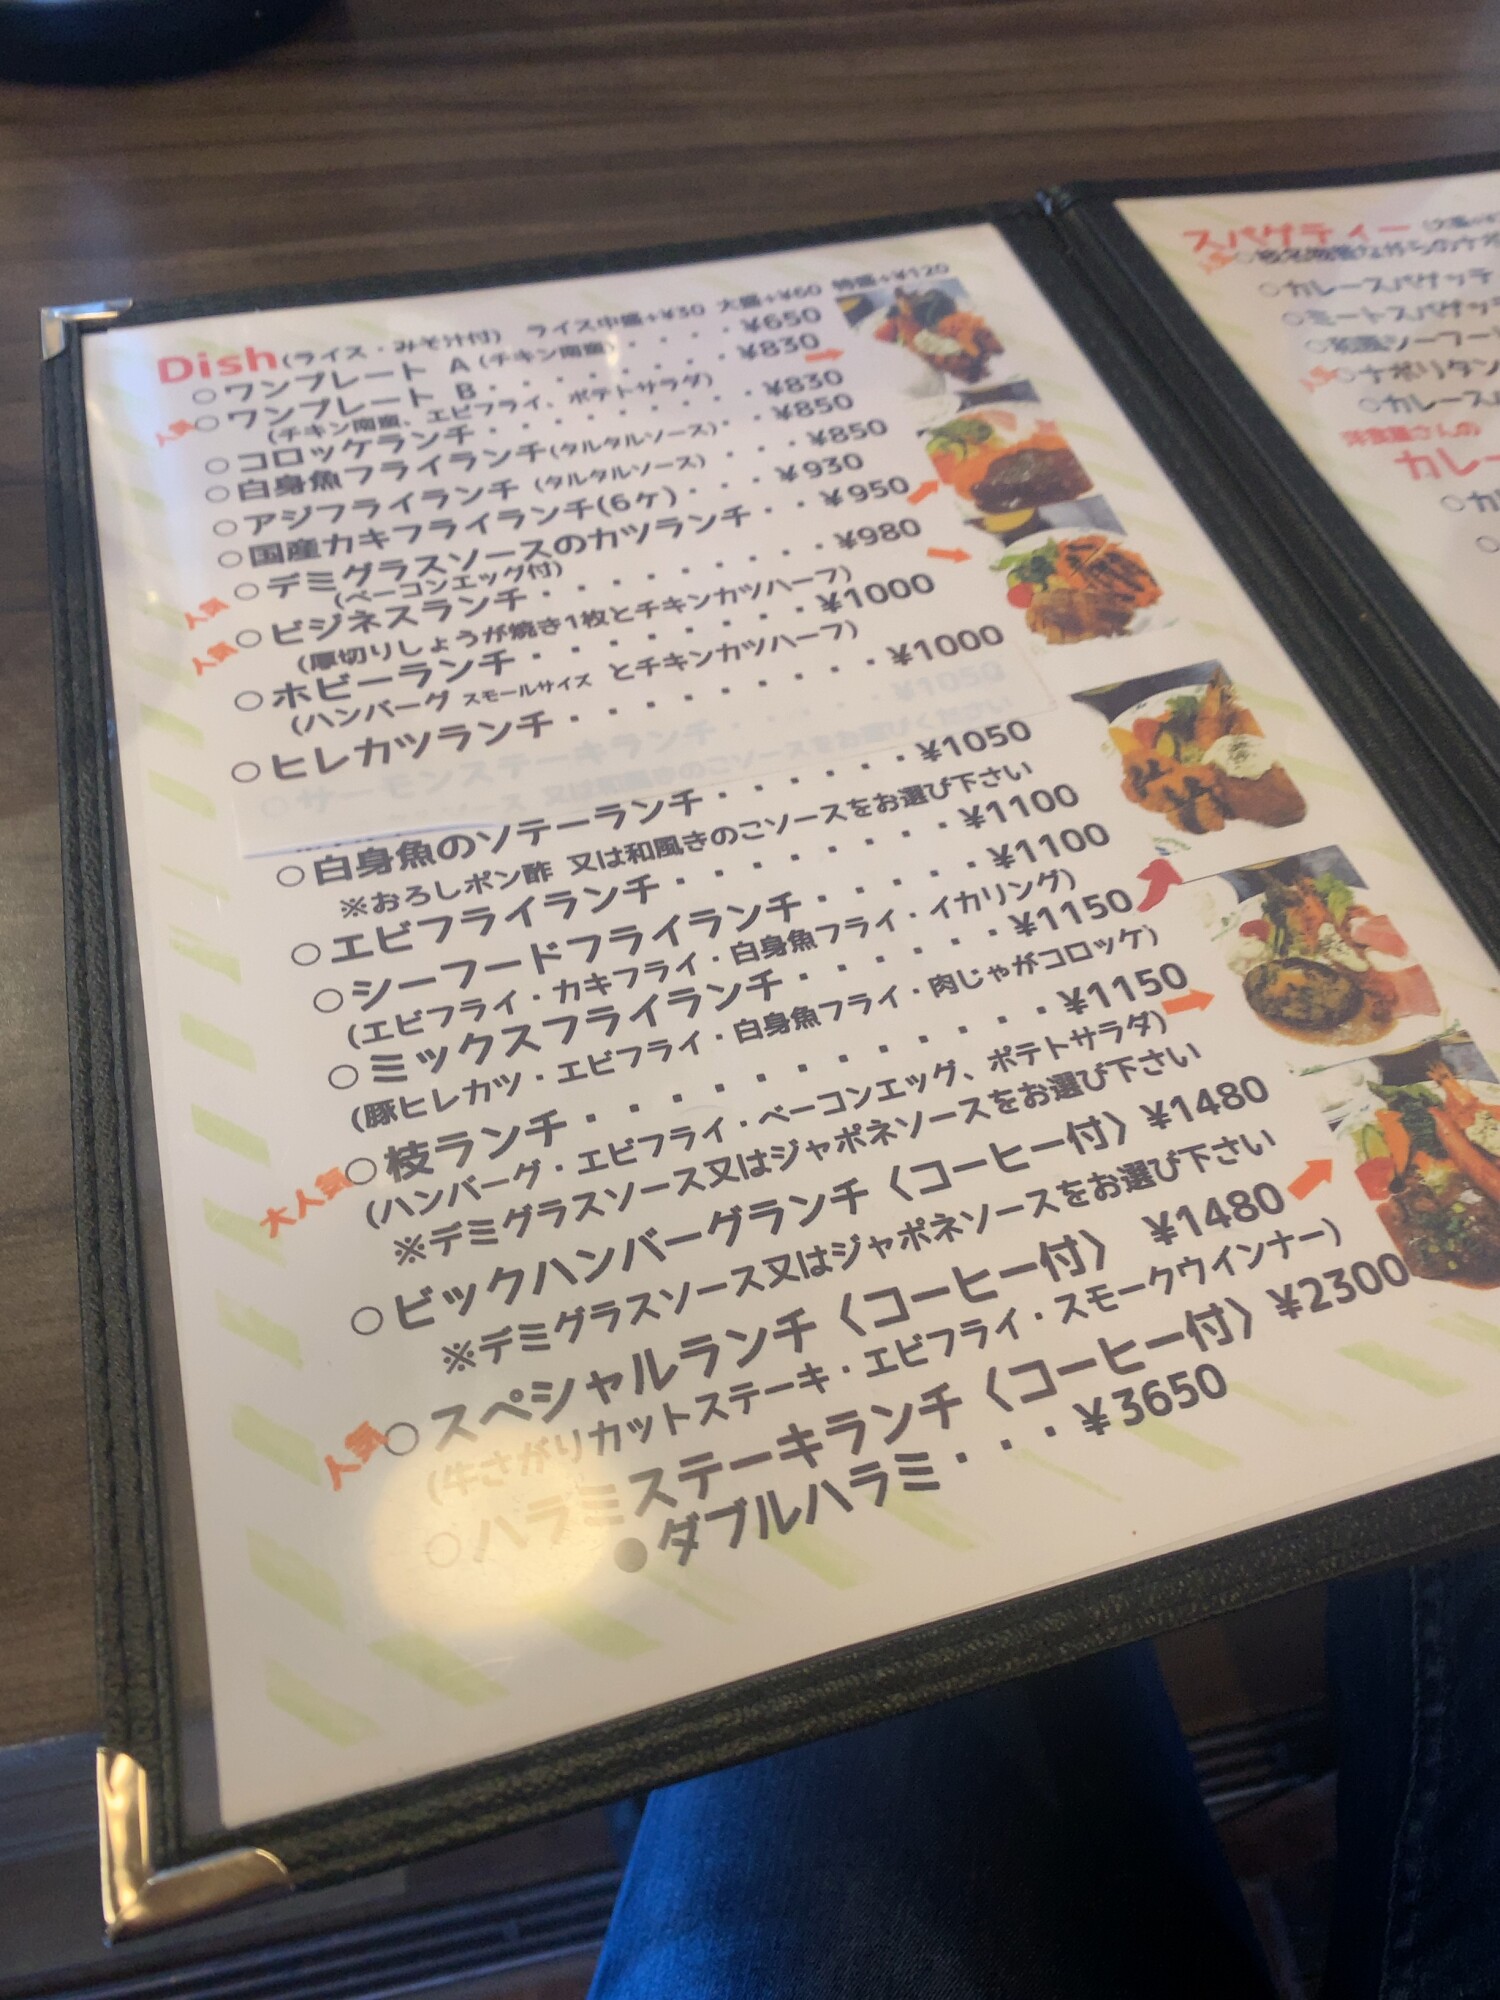 Dish(ライス・みそ汁付) ライス中盛+¥30 大盛+¥60 特盛+¥120
○ワンプレート A(チキン南蛮)・・・・¥650
人気○ワンプレート B・・・・・・・・¥830
(チキン南蛮、エビフライ、ポテトサラダ)
○コロッケランチ・・・・・・・・・・¥830
○白身魚フライランチ(タルタルソース)・・¥850
○アジフライランチ(タルタルソース)・・・¥850
○国産カキフライランチ(6ケ)・・・¥930
人気○デミグラスソースのカツランチ・・¥950
(ベーコンエッグ付)
人気○ビジネスランチ・・・・・・・・¥980
(厚切りしょうが焼き1枚とチキンカツハーフ)
○ホビーランチ・・・・・・・・¥1000
(ハンバーグ スモールサイズ とチキンカツハーフ)
○ヒレカツランチ・・・・・・・・・¥1000
○サーモンステーキランチ・・・・・¥1050
ソース 又は和風きのこソースをお選びください
○白身魚のソテーランチ・・・・・・¥1050
※おろしポン酢 又は和風きのこソースをお選び下さい
○エビフライランチ・・・・・・・・¥1100
○シーフードフライランチ・・・・・¥1100
(エビフライ・カキフライ・白身魚フライ・イカリング)
○ミックスフライランチ・・・・・・¥1150
(豚ヒレカツ・エビフライ・白身魚フライ・肉じゃがコロッケ)
大人気○枝ランチ・・・・・・・・・・・¥1150
(ハンバーグ・エビフライ・ベーコンエッグ、ポテトサラダ)
※デミグラスソース又はジャポネソースをお選び下さい
○ビックハンバーグランチ〈コーヒー付〉¥1480
※デミグラスソース又はジャポネソースをお選び下さい
人気○スペシャルランチ〈コーヒー付〉 ¥1480
(牛さがりカットステーキ・エビフライ・スモークウインナー)
○ハラミステーキランチ〈コーヒー付〉¥2300
●ダブルハラミ・・・¥3650
スパゲティー
○カレースパゲッテ
○ミートスパゲッテ
○和風シーフー
人気○ナポリタン
○カレース
洋食屋さんの
カレー
○カ